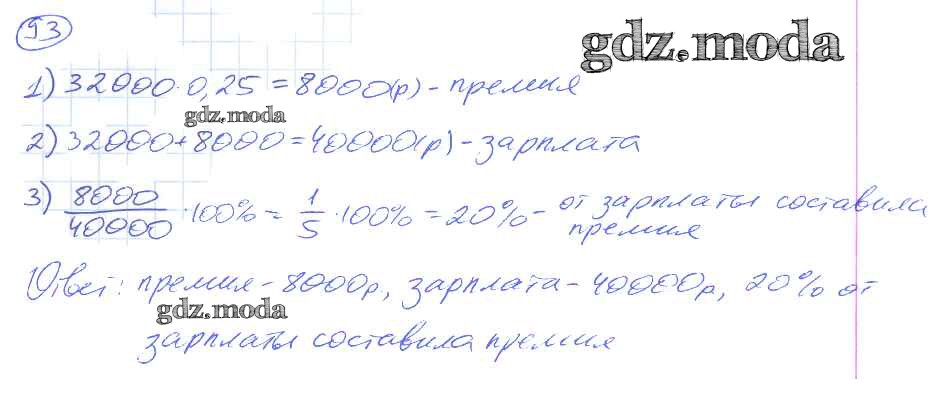 93
gdz.moda
1) 32000·0,25 = 8000(р) - премия
gdz.moda
2) 32000+8000=40000(р) - зарплата
3) 8000/40000 ·100% = 1/5 ·100% = 20% - от зарплаты составила
премия
Ответ: премия - 8000р, зарплата - 40000р, 20% от
gdz.moda
зарплаты составила премия